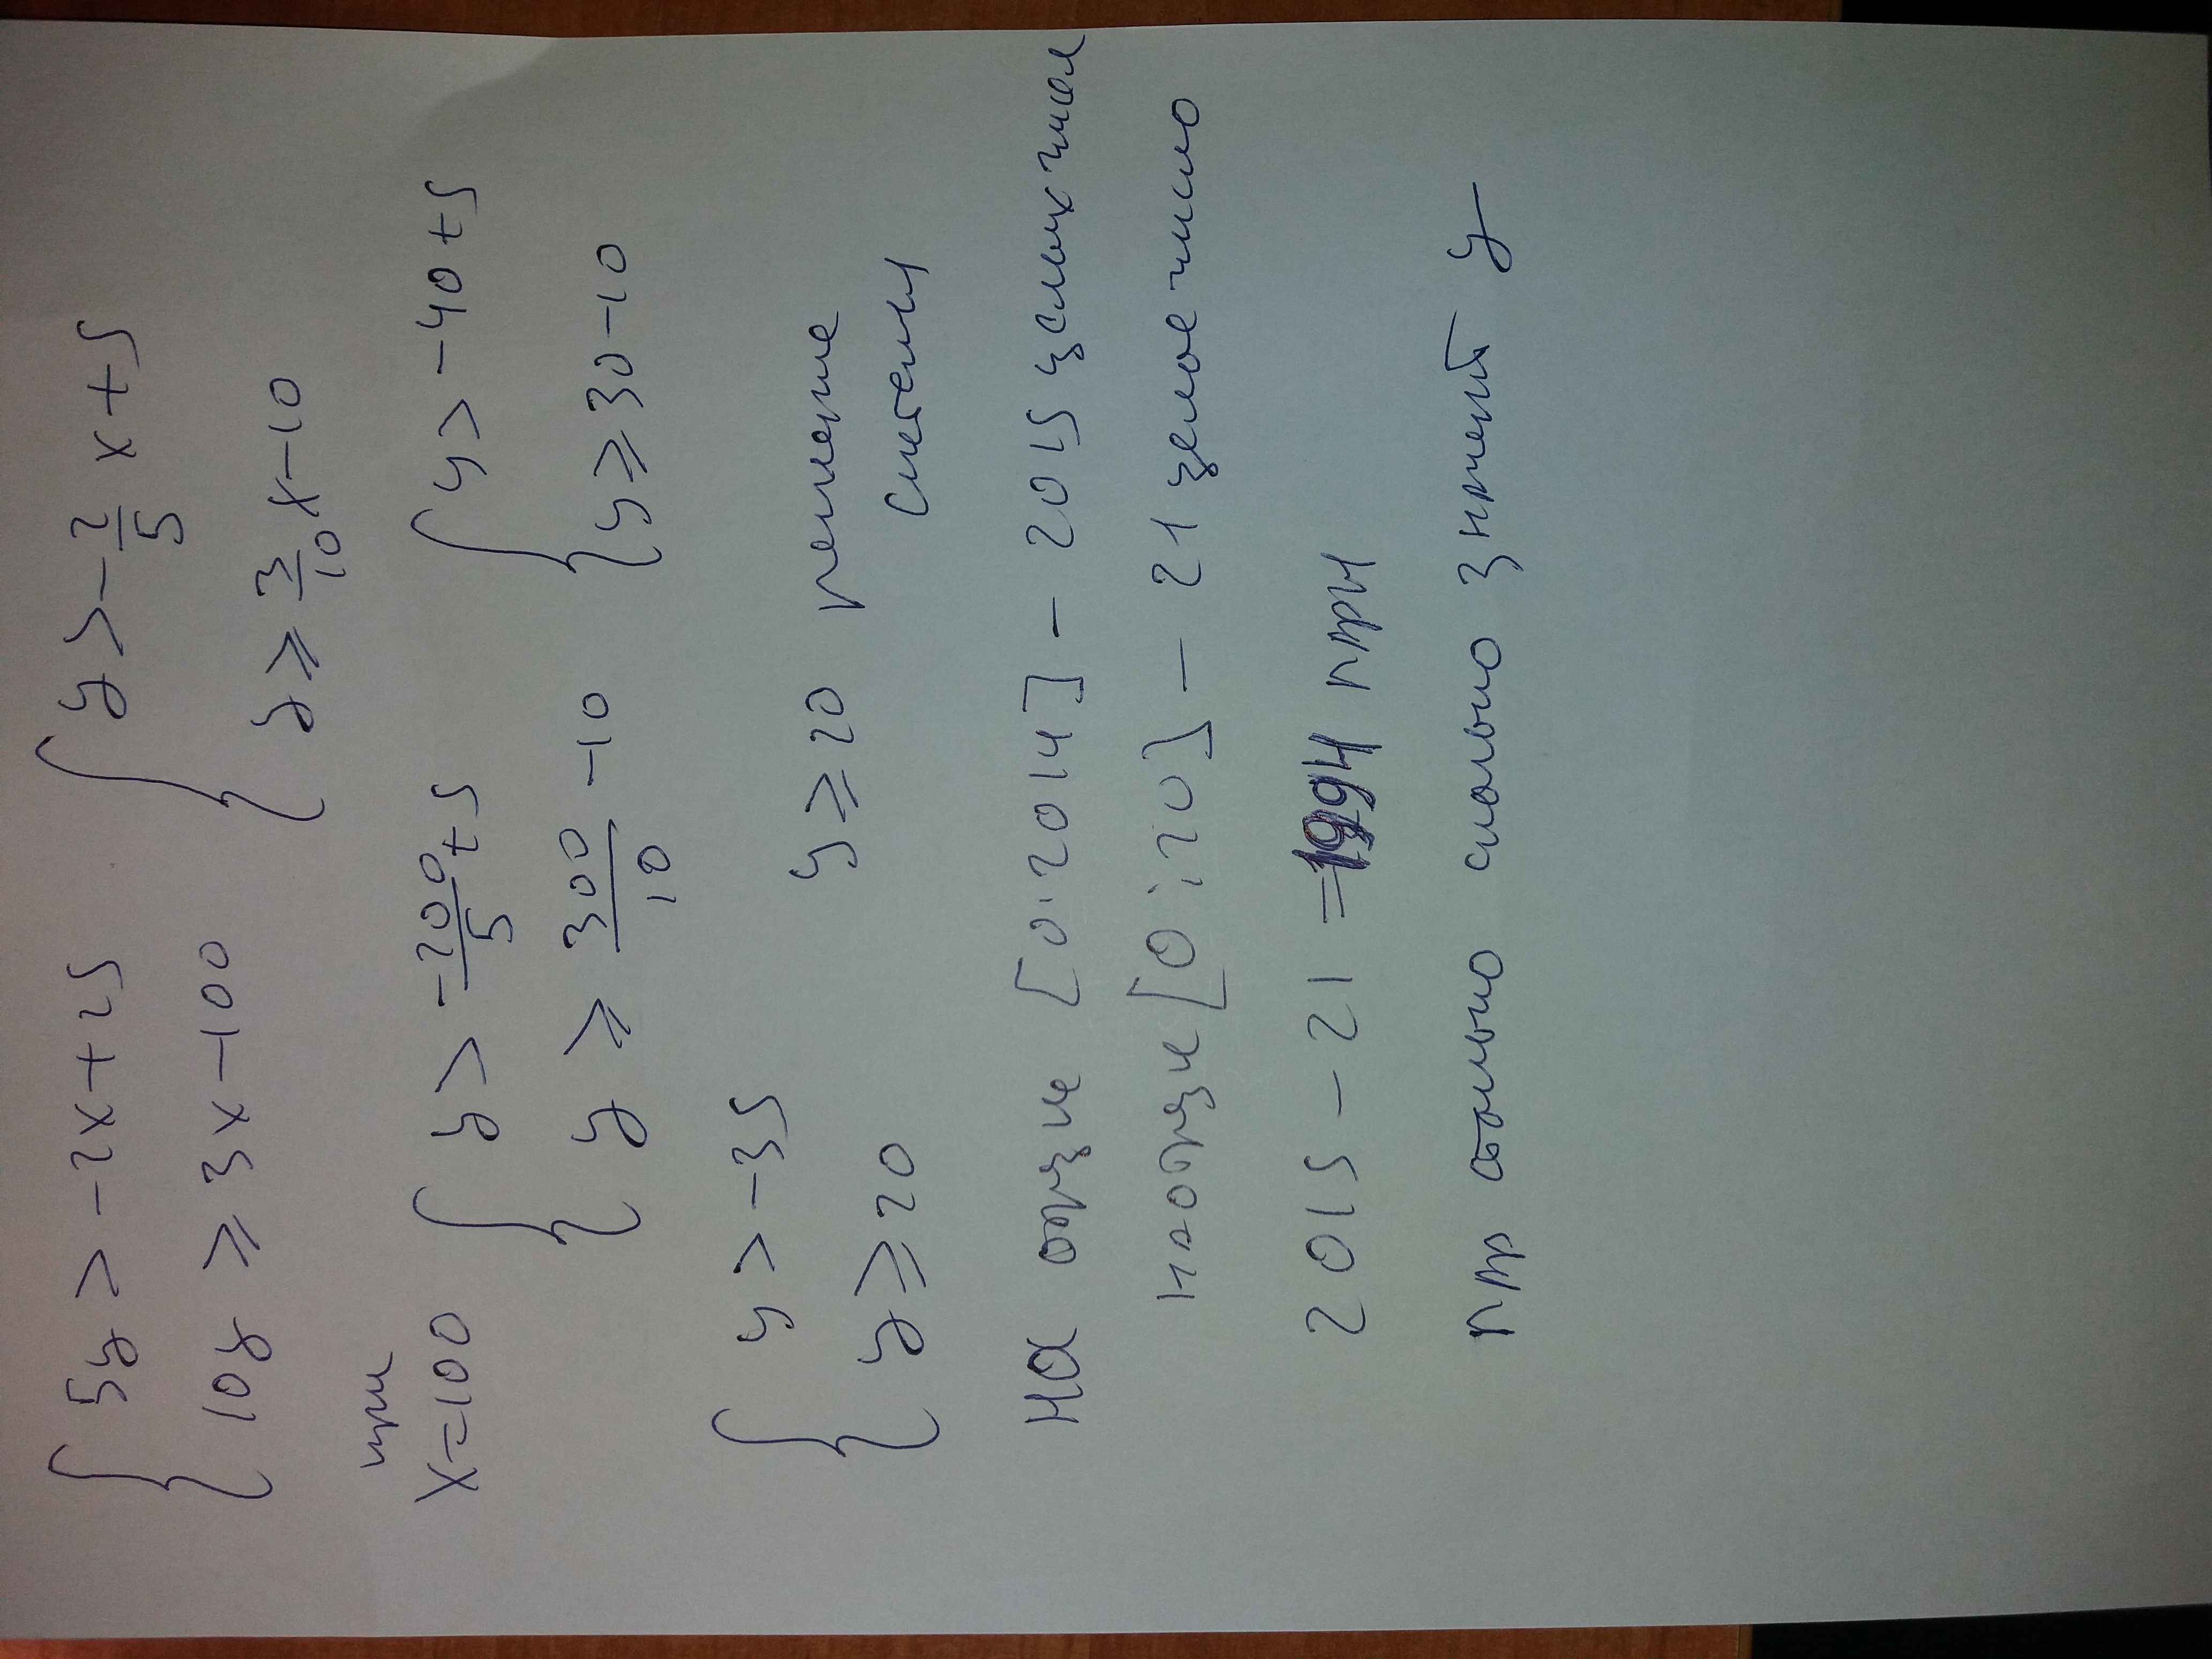 { 5y > -2x + 25 { y > -2/5 x + 5
10y ≥ 3x - 100 y ≥ 3/10 x - 10
при
x = 100 { y > -200/5 + 5 { y > -40 + 5
y ≥ 300/10 - 10 { y ≥ 30 - 10
{ y > -35
y ≥ 20 y ≥ 20 решение
системы
на отрзке [0; 2014] - 2015 целых чисел
на отрзке [0; 20] - 21 целое число
2015 - 21 = 1994 при
при стольких скольких y